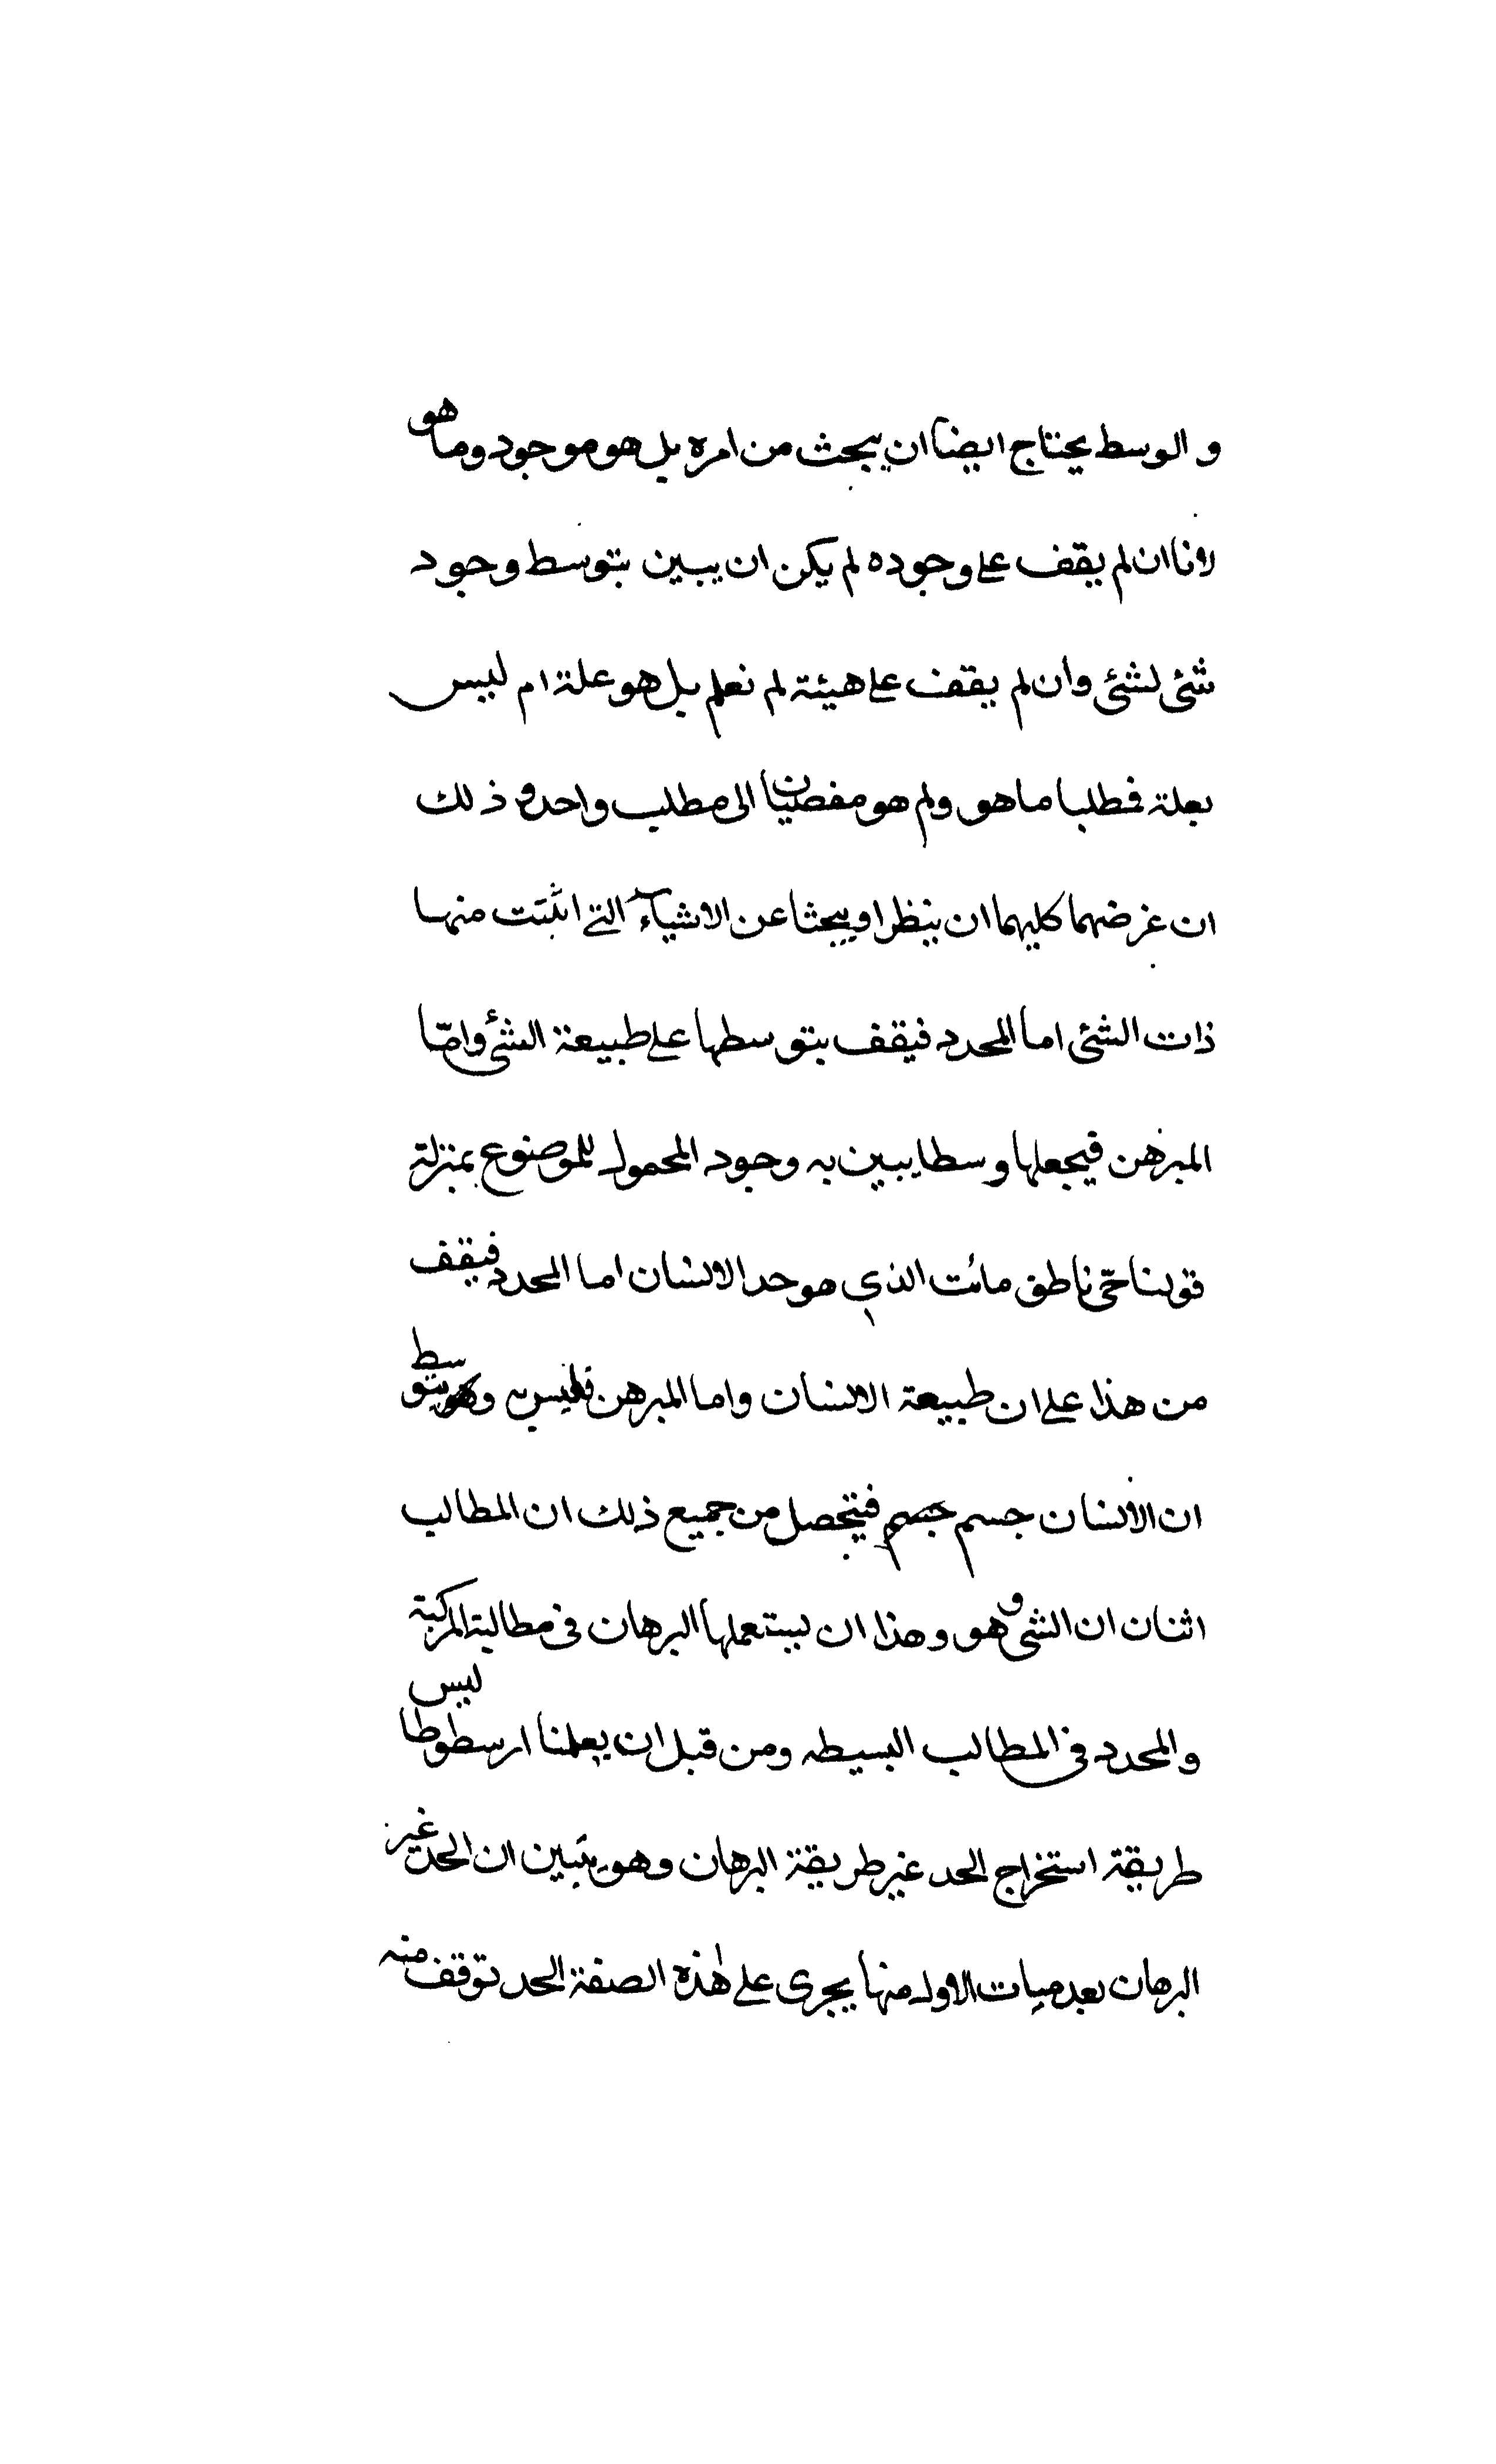 و الوسط يحتاج ايضا ان يبحث من امره بل هو موجود وما هو
لانا ان لم يقف على وجوده لم يكن ان يبين بتوسط وجود
شئ لشئ وان لم يقف على هيئة لم نعلم بل هو علة ام ليس
بعلة فطلبا ما هو ولم هو مفضيان الى مطلب واحد و ذلك
ان غرضهما كليهما ان ينظرا ويبحثا عن الاشياء التى اثبتت منها
ذات الشئ اما المحدد فيقف بتوسطها على طبيعة الشئ وامّا
المبرهن فيجعلها وسطا يبين به وجود المحمول للموضوع بمنزلة
قولنا حىّ ناطق مائت الذى هو حد الانسان اما المحدد فيقف
من هذا على ان طبيعة الانسان واما المبرهن فليس به وهو بتوسط
ان الانسان جسم فيتحصل من جميع ذلك ان المطالب
اثنان ان الشى و هو وهذا ان يستعملها البرهان فى مطالبة المركبة
والمحدد فى المطالب البسيطه ومن قبل ان يعلمنا ارسطوطاليس
طريقة استخراج الحد غير طريقة البرهان وهو يتبين ان الحد غير
البرهان بعد ميات الاول منها يجرى على هذه الصفة الحد توقف منه